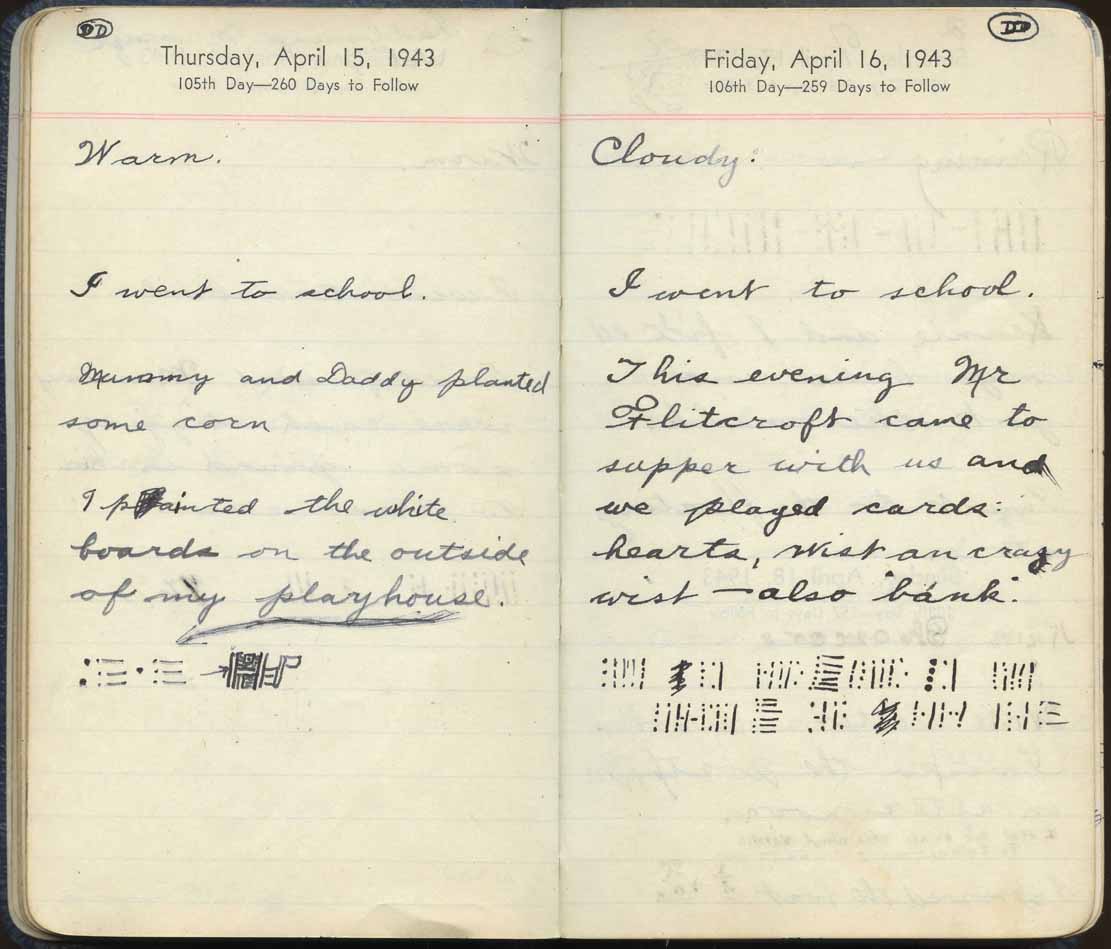 Thursday, April 15, 1943
105th Day—260 Days to Follow
Warm.
I went to school.
Mummy and Daddy planted
some corn
I painted the white
boards on the outside
of my playhouse.
Friday, April 16, 1943
106th Day—259 Days to Follow
Cloudy:
I went to school.
This evening Mr
Flitcroft came to
supper with us and
we played cards:
hearts, wist an crazy
wist — also bank.